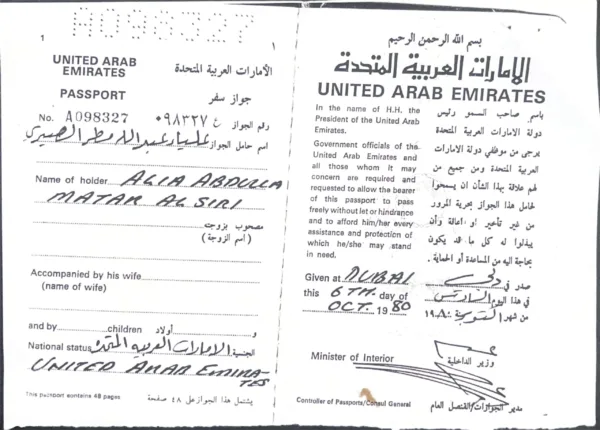 A098327
1
1
UNITED ARAB
EMIRATES
الامارات العربية المتحدة
PASSPORT
جواز سفر
No. A098327
رقم الجواز ع ٠٩٨٣٢٧
اسم حامل الجواز
Name of holder ALIA ABDULLA
MATAR AL SIRI
مصحوب بزوجته
(اسم الزوجة)
Accompanied by his wife
(name of wife)
and by children أولاد و
National status الجنسية الامارات العربية المتحدة
UNITED ARAB EMIRA-
TES
This passport contains 48 pages
يشتمل هذا الجواز على ٤٨ صفحة
بسم الله الرحمن الرحيم
الامارات العربية المتحدة
UNITED ARAB EMIRATES
In the name of H.H. the
President of the United Arab
Emirates.
Government officials of the
United Arab Emirates and
all those whom it may
concern are required and
requested to allow the bearer
of this passport to pass
freely without let or hindrance
and to afford him/her every
assistance and protection of
which he/she may stand
in need.
باسم صاحب السمو رئيس
دولة الامارات العربية المتحدة
يرجى من موظفي دولة الامارات
العربية المتحدة ومن جميع من
لهم علاقة بهذا الشأن ان يسمحوا
لحامل هذا الجواز بحرية المرور
من غير تأخير أو اعاقة وأن
يبذلوا له كل ما قد يكون
بحاجة اليه من المساعدة أو الحماية .
Given at DUBAI
صدر في دبي
this 6TH. day of
في هذا اليوم السادس
OCT. 1980
من شهر ١٩٨٠
Minister of Interior
وزير الداخلية
Controller of Passports/Consul General
مدير الجوازات/القنصل العام